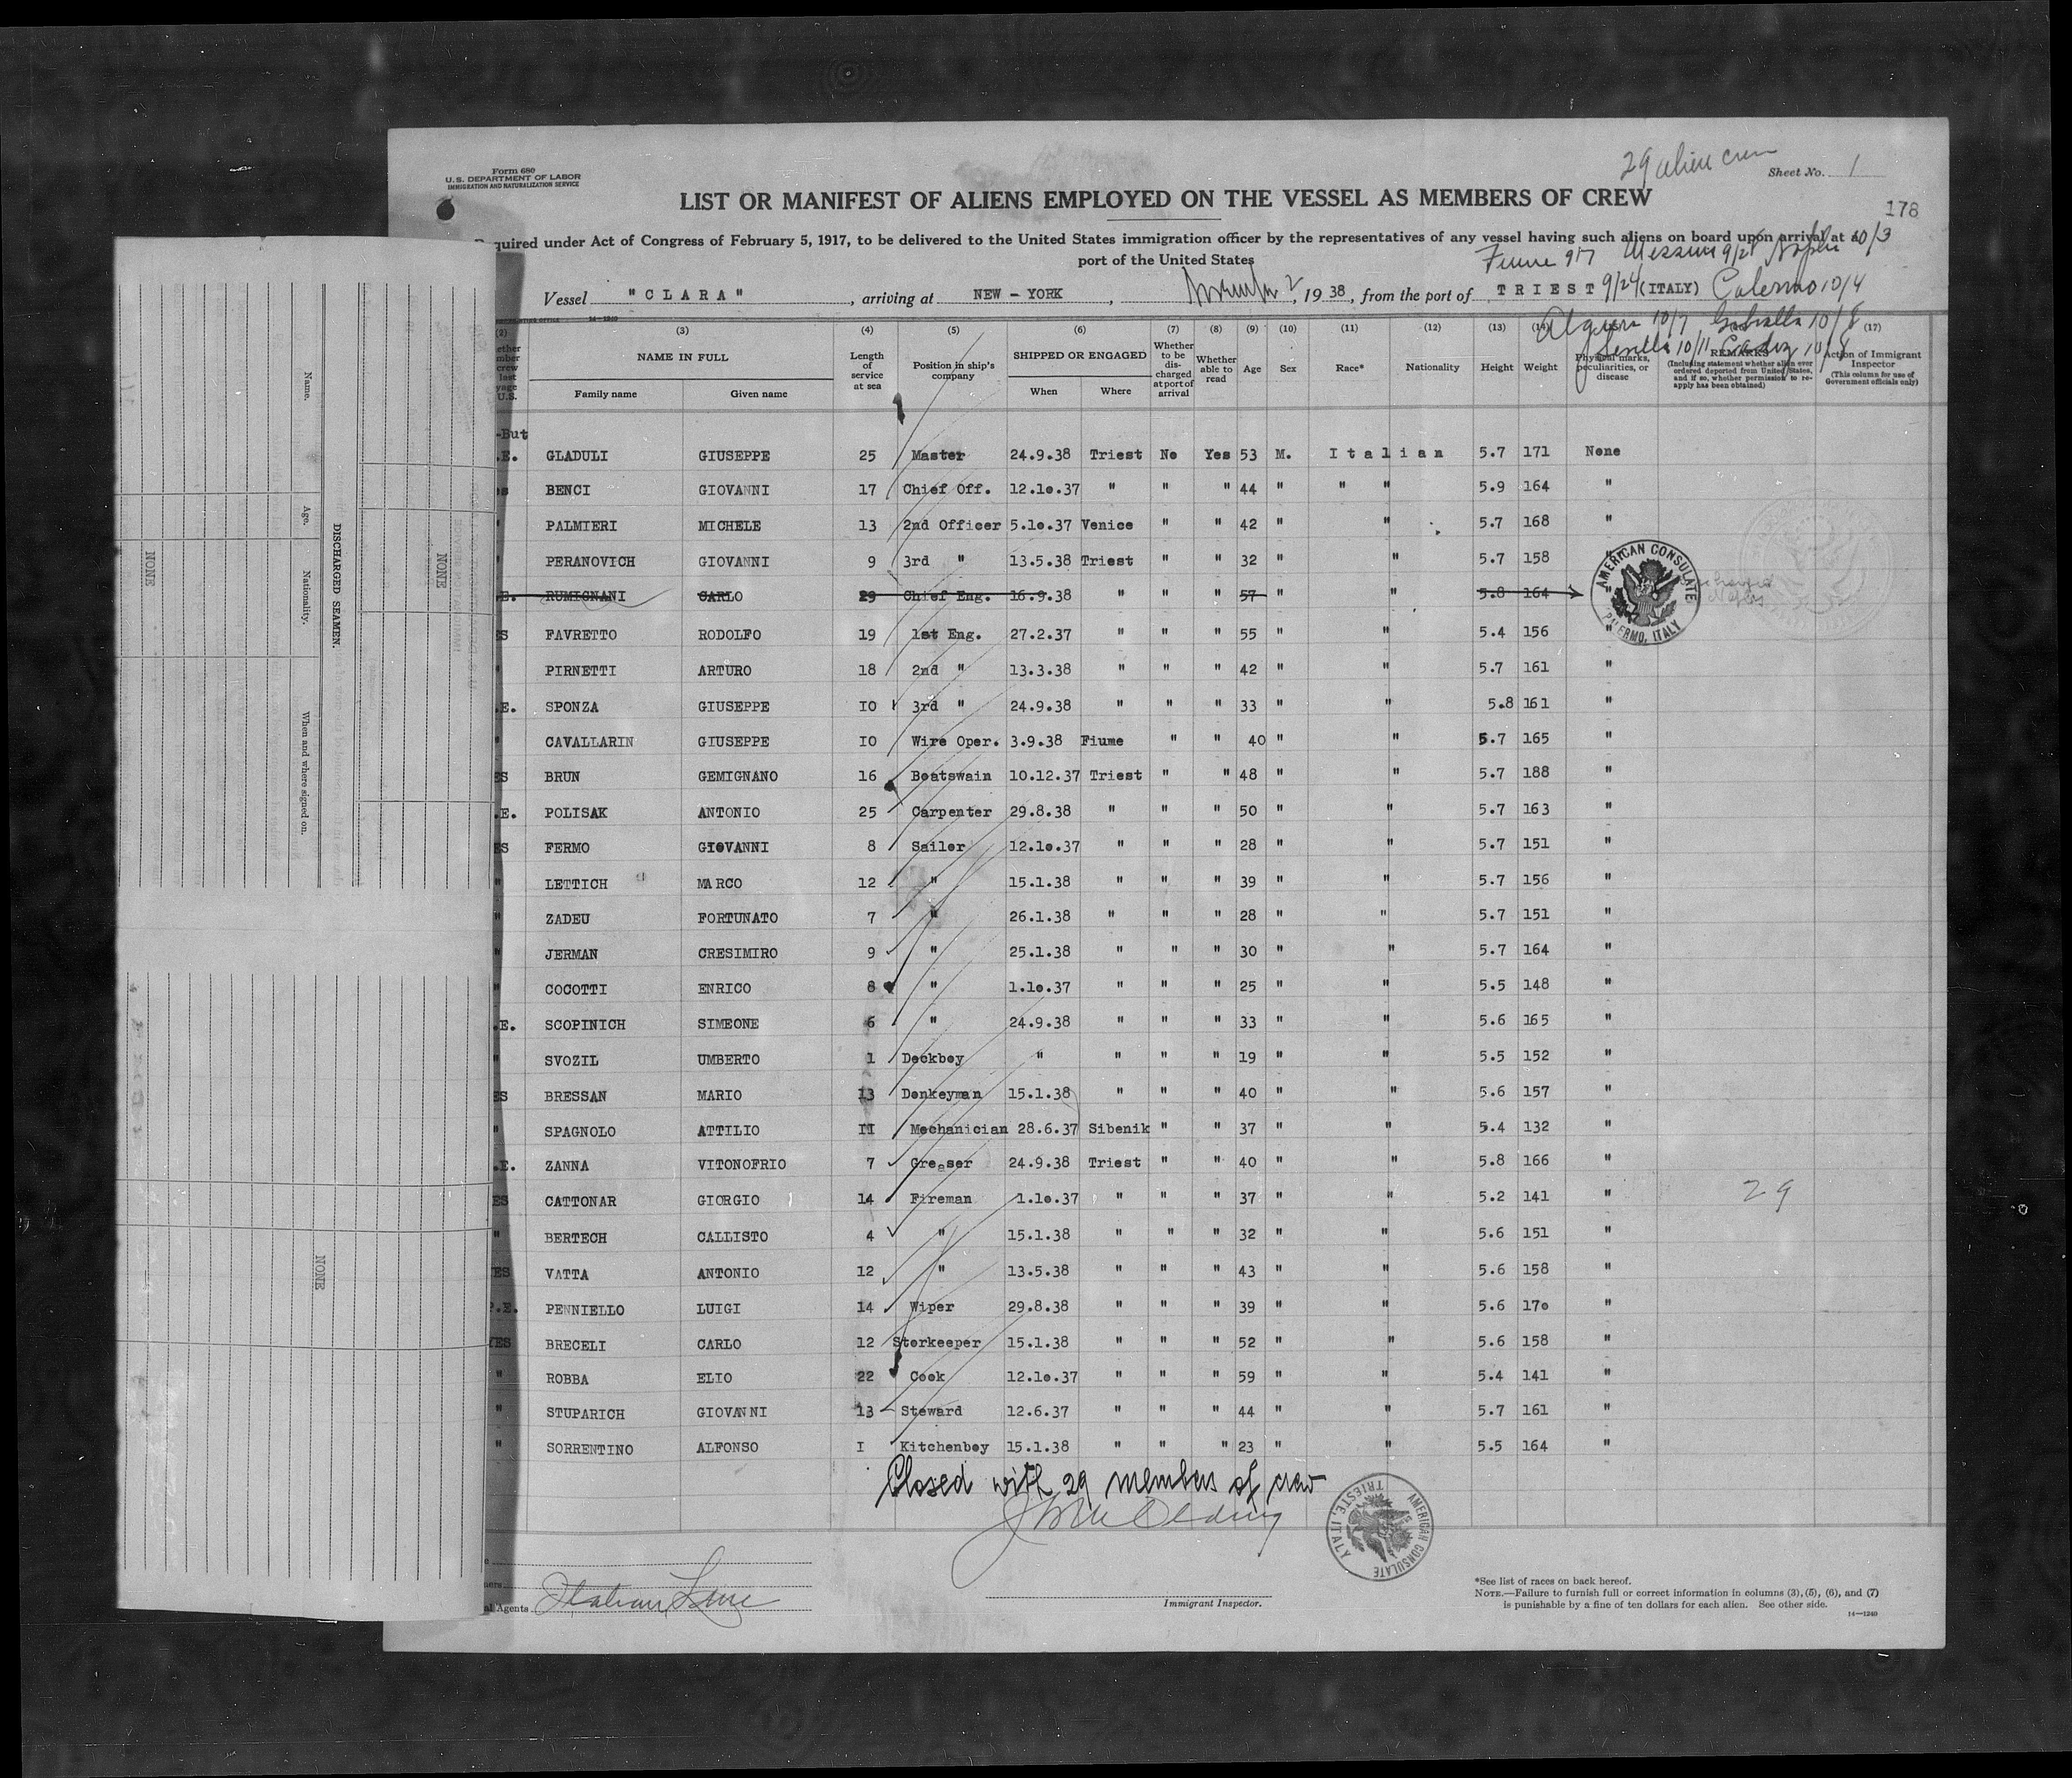 Form 680
U.S. DEPARTMENT OF LABOR
IMMIGRATION AND NATURALIZATION SERVICE
29 alien crew
Sheet No. 1
LIST OR MANIFEST OF ALIENS EMPLOYED ON THE VESSEL AS MEMBERS OF CREW
178
quired under Act of Congress of February 5, 1917, to be delivered to the United States immigration officer by the representatives of any vessel having such aliens on board upon arrival at a
port of the United States
Fiume 9/7 Messina 9/28 Naples 10/3
Vessel "CLARA", arriving at NEW-YORK, November 2, 1938, from the port of TRIEST 9/24 (ITALY) Palermo 10/4
Algiers 10/7
Sevilla 10/11 Cadiz 10/8
14-1240
(2) (3) (4) (5) (6) (7) (8) (9) (10) (11) (12) (13) (14) (17)
NAME IN FULL
Family name Given name
Length of service at sea
Position in ship's company
SHIPPED OR ENGAGED
When Where
Whether to be discharged at port of arrival
Whether able to read
Age Sex Race* Nationality Height Weight
Physical marks, peculiarities, or disease
REMARKS
(Including statement whether alien ever ordered deported from United States, and if so, whether permission to reapply has been obtained)
Action of Immigrant Inspector
(This column for use of Government officials only)
-But
.E. GLADULI GIUSEPPE 25 Master 24.9.38 Triest No Yes 53 M. Italian 5.7 171 None
BENCI GIOVANNI 17 Chief Off. 12.10.37 " " " 44 " " " 5.9 164 "
" PALMIERI MICHELE 13 2nd Officer 5.10.37 Venice " " 42 " " 5.7 168 "
" PERANOVICH GIOVANNI 9 3rd " 13.5.38 Triest " " 32 " " 5.7 158 "
E. RUMIGNANI CARLO 29 Chief Eng. 16.9.38 " " " 57 " " 5.8 164
ES FAVRETTO RODOLFO 19 1st Eng. 27.2.37 " " " 55 " " 5.4 156 "
" PIRNETTI ARTURO 18 2nd " 13.3.38 " " " 42 " " 5.7 161 "
.E. SPONZA GIUSEPPE IO 3rd " 24.9.38 " " " 33 " " 5.8 161 "
" CAVALLARIN GIUSEPPE IO Wire Oper. 3.9.38 Fiume " " 40 " " 5.7 165 "
ES BRUN GEMIGNANO 16 Boatswain 10.12.37 Triest " " 48 " " 5.7 188 "
.E. POLISAK ANTONIO 25 Carpenter 29.8.38 " " " 50 " " 5.7 163 "
ES FERMO GIOVANNI 8 Sailor 12.10.37 " " " 28 " " 5.7 151 "
" LETTICH MARCO 12 " 15.1.38 " " " 39 " " 5.7 156 "
" ZADEU FORTUNATO 7 " 26.1.38 " " " 28 " " 5.7 151 "
" JERMAN CRESIMIRO 9 " 25.1.38 " " " 30 " " 5.7 164 "
" COCOTTI ENRICO 8 " 1.10.37 " " " 25 " " 5.5 148 "
.E. SCOPINICH SIMEONE 6 " 24.9.38 " " " 33 " " 5.6 165 "
" SVOZIL UMBERTO 1 Deckboy " " " " 19 " " 5.5 152 "
ES BRESSAN MARIO 13 Donkeyman 15.1.38 " " " 40 " " 5.6 157 "
" SPAGNOLO ATTILIO II Mechanician 28.6.37 Sibenik " " 37 " " 5.4 132 "
.E. ZANNA VITONOFRIO 7 Greaser 24.9.38 Triest " " 40 " " 5.8 166 "
ES CATTONAR GIORGIO 14 Fireman 1.10.37 " " " 37 " " 5.2 141 "
29
" BERTECH CALLISTO 4 " 15.1.38 " " " 32 " " 5.6 151 "
ES VATTA ANTONIO 12 " 13.5.38 " " " 43 " " 5.6 158 "
P.E. PENNIELLO LUIGI 14 Wiper 29.8.38 " " " 39 " " 5.6 170 "
YES BRECELI CARLO 12 Storkeeper 15.1.38 " " " 52 " " 5.6 158 "
" ROBBA ELIO 22 Cook 12.10.37 " " " 59 " " 5.4 141 "
" STUPARICH GIOVANNI 13 Steward 12.6.37 " " " 44 " " 5.7 161 "
" SORRENTINO ALFONSO I Kitchenboy 15.1.38 " " " 23 " " 5.5 164 "
AMERICAN CONSULATE
PALERMO, ITALY
Closed with 29 members of crew
AMERICAN CONSULATE
TRIESTE, ITALY
Agents Italian Line
Immigrant Inspector.
*See list of races on back hereof.
NOTE.—Failure to furnish full or correct information in columns (3), (5), (6), and (7)
is punishable by a fine of ten dollars for each alien. See other side.
14—1240
DISCHARGED SEAMEN.
Name. Age. Nationality. When and where signed on.
NONE
NONE
NONE